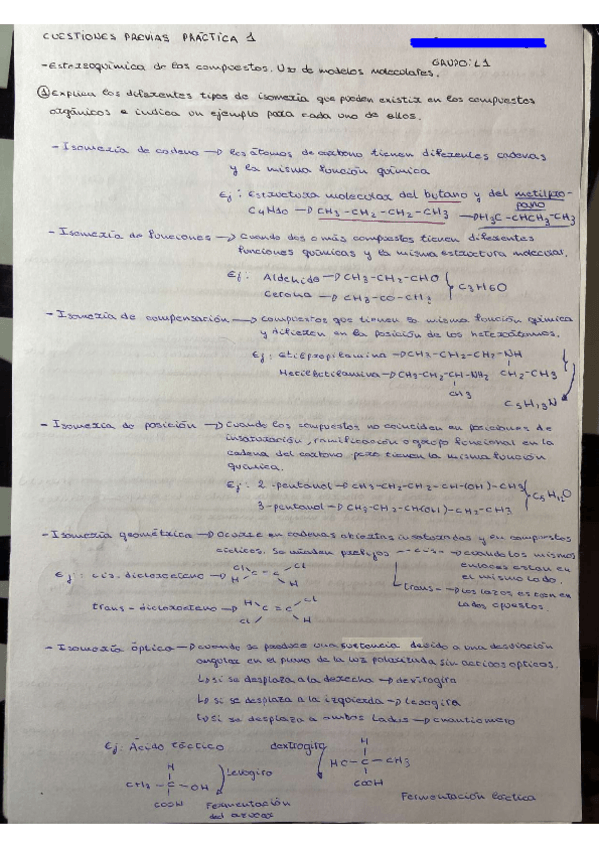 CUESTIONES PREVIAS PRÁCTICA 1
GRUPO: L1
- Estereoquímica de los compuestos. Uso de modelos moleculares.
① Explica los diferentes tipos de isomería que pueden existir en los compuestos
orgánicos e indica un ejemplo para cada uno de ellos.
- Isomería de cadena → los átomos de carbono tienen diferentes cadenas
y la misma función química
Ej: Estructura molecular del butano y del metilpro-
pano
C4H10 → CH3-CH2-CH2-CH3 → CH3C-CHCH3-CH3
- Isomería de funciones → Cuando dos o más compuestos tienen diferentes
funciones químicas y la misma estructura molecular.
Ej: Aldehido → CH3-CH2-CHO
Cetona → CH3-CO-CH3
C3H6O
- Isomería de compensación → compuestos que tienen la misma función química
y difieren en la posición de los heteroátomos.
Ej: etilpropilamina → CH3-CH2-CH2-NH
CH2-CH3
→ CH3-CH2-CH-NH2
CH3
C5H13N
- Isomería de posición → Cuando los compuestos no coinciden en posiciones de
insaturación, ramificación o grupo funcional en la
cadena del carbono pero tienen la misma función
química.
Ej: 2-pentanol → CH3-CH2-CH2-CH(OH)-CH3
3-pentanol → CH3-CH2-CH(OH)-CH2-CH3
C5H12O
- Isomería geométrica → Ocurre en cadenas abiertas insaturadas y en compuestos
cíclicos. Se añaden prefijos -- cis- → cuando los mismos
enlaces están en
el mismo lado.
trans- → los lazos están en
lados opuestos.
Ej: cis-dicloroeteno → Cl Cl
H C=C H
trans-dicloroeteno → H C=C Cl
Cl H
- Isomería óptica → cuando se produce una sustancia debido a una desviación
angular en el plano de la luz polarizada sin activos opticos.
↳ si se desplaza a la derecha → dextrogira
↳ si se desplaza a la izquierda → levogira
↳ si se desplaza a ambos lados → enantiomero
Ej: Ácido láctico
dextrogiro
levogiro
H
CH3-C-OH
COOH
H
HO-C-CH3
COOH
Fermentación
del azucar
Fermentación láctica